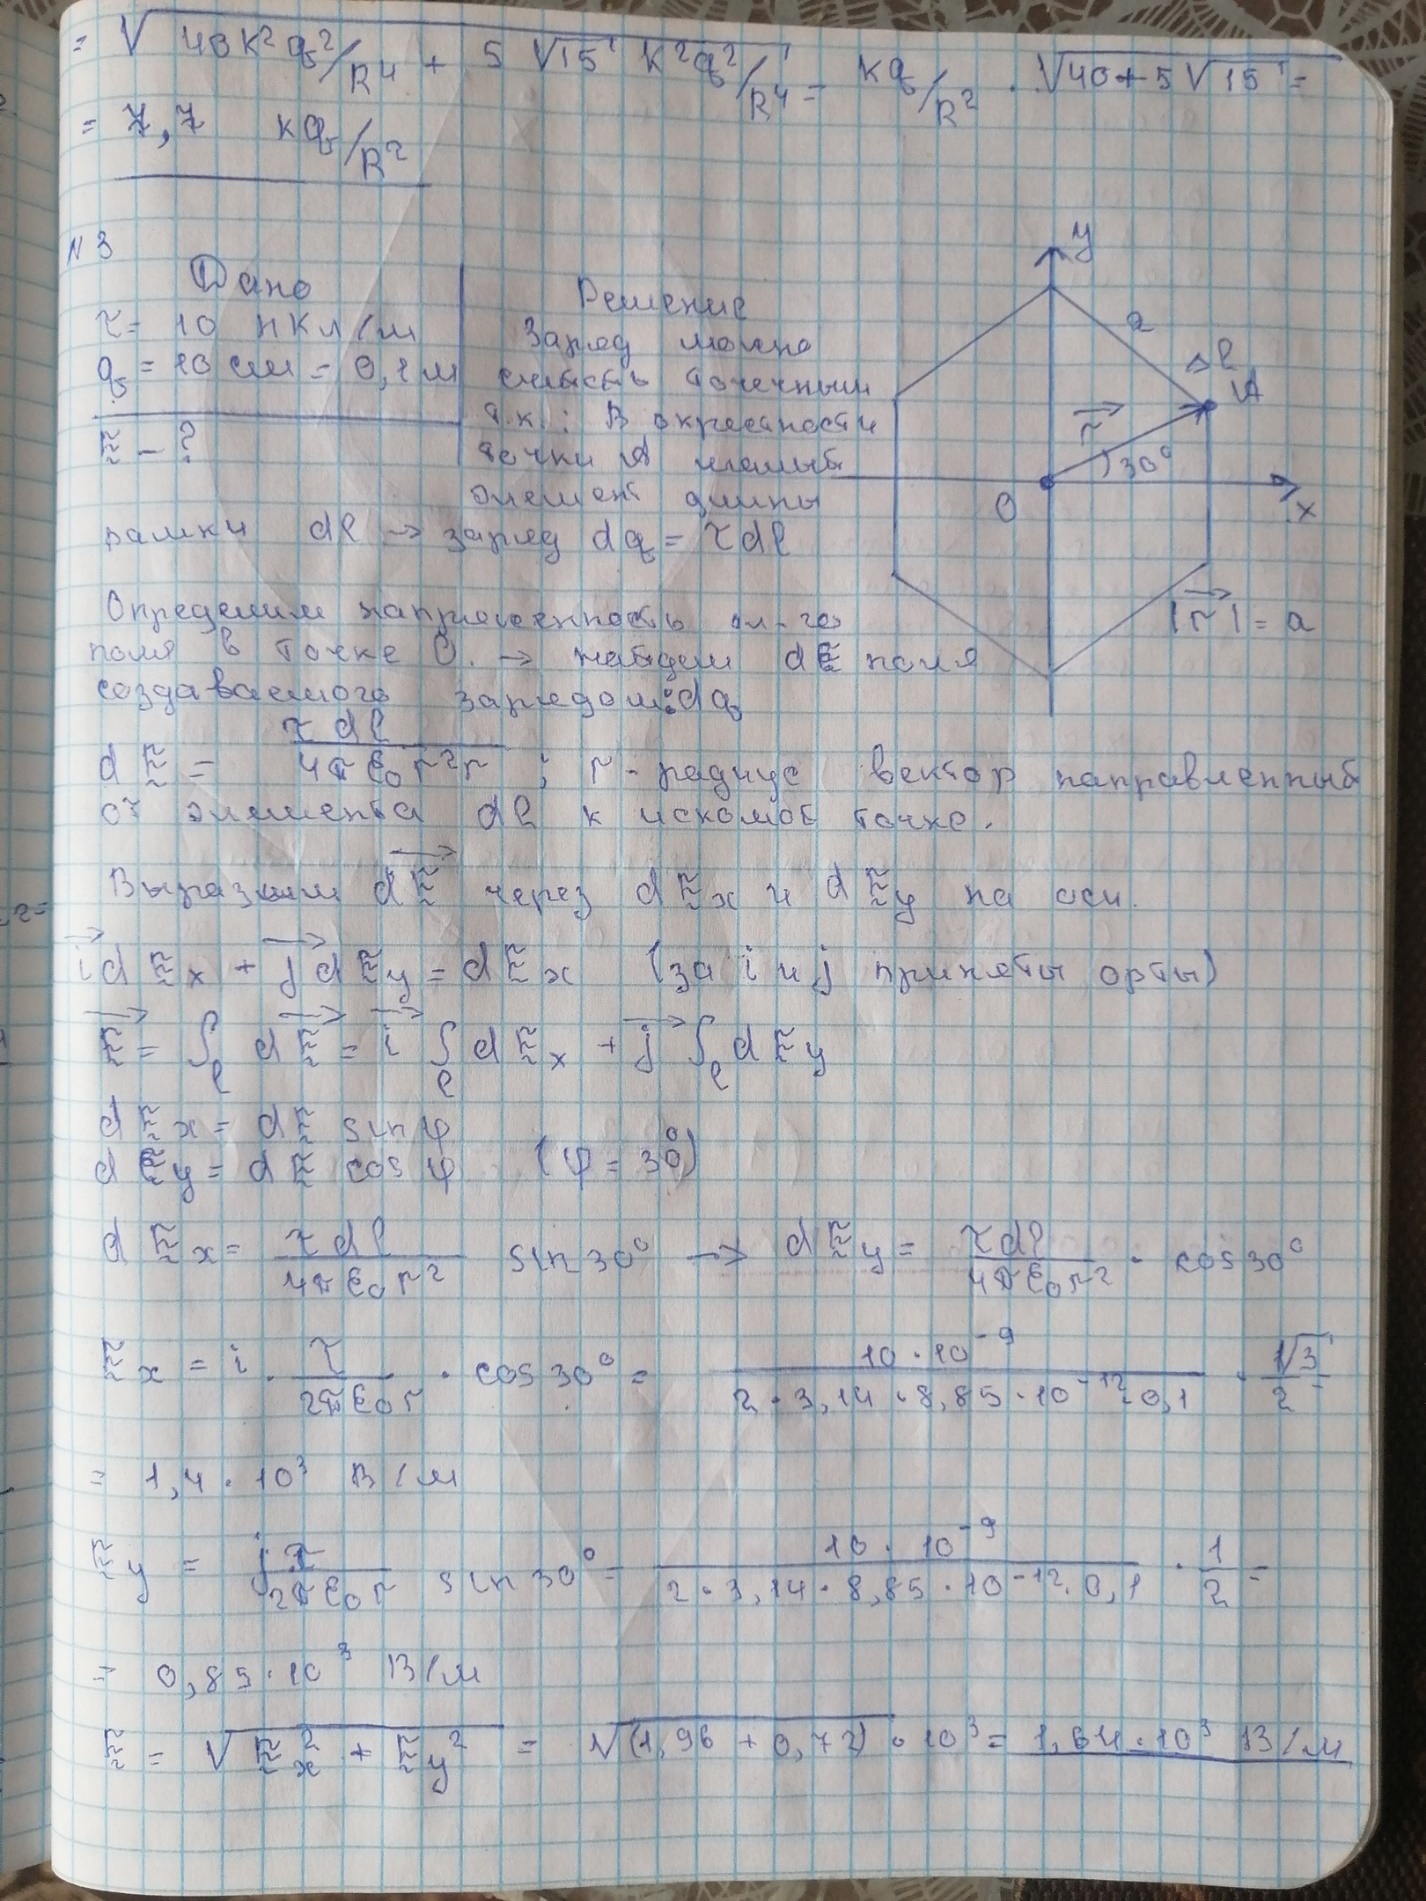 = √(40k²q²/R⁴ + 5√15 k²q²/R⁴) = kq/R² · √(40+5√15) =
= 7,7 kq/R²
N3
Дано
Решение
τ = 10 нКл/м
Заряд можно
a = 10 см = 0,1 м
считать точечным
т.к.: В окрестности
E - ?
точки A малый
элемент длины
рамки dl → заряд dq = τdl
y
a
Δl
A
r
30°
O
x
|r| = a
Определим напряженность эл-го
поля в точке O. → найдем dE поля
создаваемого зарядом: dq
dE = τdl / 4πε₀r²r ; r - радиус вектор направленный
от элемента dl к искомой точке.
Выразим dE через dEx и dEy на оси.
i dEx + j dEy = dEx (за i и j приняты орты)
E = ∫l dE = i ∫l dEx + j ∫l dEy
dEx = dE sinφ
dEy = dE cosφ (φ = 30°)
dEx = τdl / 4πε₀r² sin30° → dEy = τdl / 4πε₀r² · cos30°
Ex = i · τ / 2πε₀r · cos30° = 10·10⁻⁹ / 2·3,14·8,85·10⁻¹²·0,1 · √3/2 =
= 1,4·10³ В/м
Ey = jτ / 2πε₀r sin30° = 10·10⁻⁹ / 2·3,14·8,85·10⁻¹²·0,1 · 1/2 =
= 0,85·10³ В/м
E = √(Ex² + Ey²) = √(1,96 + 0,72) · 10³ = 1,64·10³ В/м